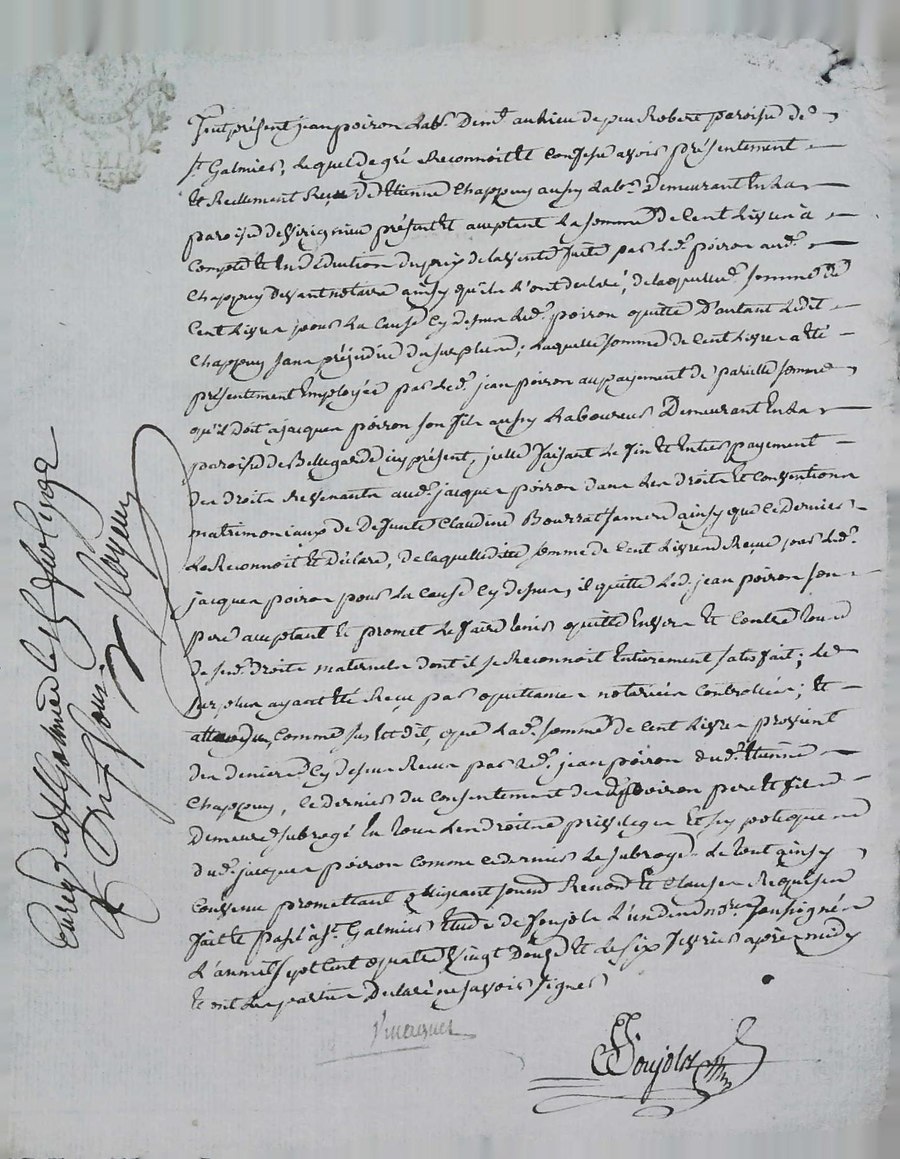 Fut présent jean poiron Lab.r Dem.t au lieu de peu Robert paroisse de
s.t Galmier, Lequel de gré a Reconnoit et Confesse avoir présentement
et Reellement Reçu de Etienne Chappuy aussy Lab.r Demeurant En La
paroisse de Virignieu présent et acceptant La somme de Cent Livres à
Compte et In Dédution du prix de la Vente faite par led. poiron aud.
Chappuy Devant notaire ainsy qu'ils L'ont declaré, de laquelle d. somme de
Cent Livres pour La Cause Cy dessus led. poiron quitte D'autant Ledit
Chappuy sans préjudice du surplus; Laquelle somme de Cent Livres a été
présentement Employée par led. jean poiron au payement de pareille somme
qu'il Doit a jacques poiron son fils aussy Laboureur Demeurant En La
paroisse de Bellegarde icy présent, jcelle faisant Le fin et Entier payement
des droits Revenants aud. jacques poiron dans Les Droits et Conventions
matrimoniaux de Defunte Claudine Bourrat sa mere ainsy que ce dernier
Le Reconnoit et Déclare, de laquelle ditte somme de Cent Livres Reçue par led.
jacques poiron pour La Cause Cy dessus, il quitte led. jean poiron son
pere acceptant et promet Le faire tenir quitte Envers et Contre tous
de sesd. Droits maternels dont il se Reconnoit Entierement satisfait; Le
surplus ayant été Reçu par quittances notariées Controllées; et
attendu, Comme jus est dit, que Lad. somme de Cent Livres provient
des deniers Cy dessus Reçus par led. jean poiron dud. Etienne
Chappuy, Ce dernier du Consentement desd. poiron pere et fils
Demeure subrogé En Tous Les Droits privileges et hypoteques
dud. jacques poiron Comme ce dernier Le subroge. Le tout ainsy
Convenu promettant obligeant soumd. Renond. et Clauses Requises
fait et passé à s.t Galmier Etude de Soujols L'un des nd.res soussignés
L'année sept Cent quatre Vingt Douze et Le six fevrier après midy
Et ont Les parties Declaré ne savoir signer
Soujols